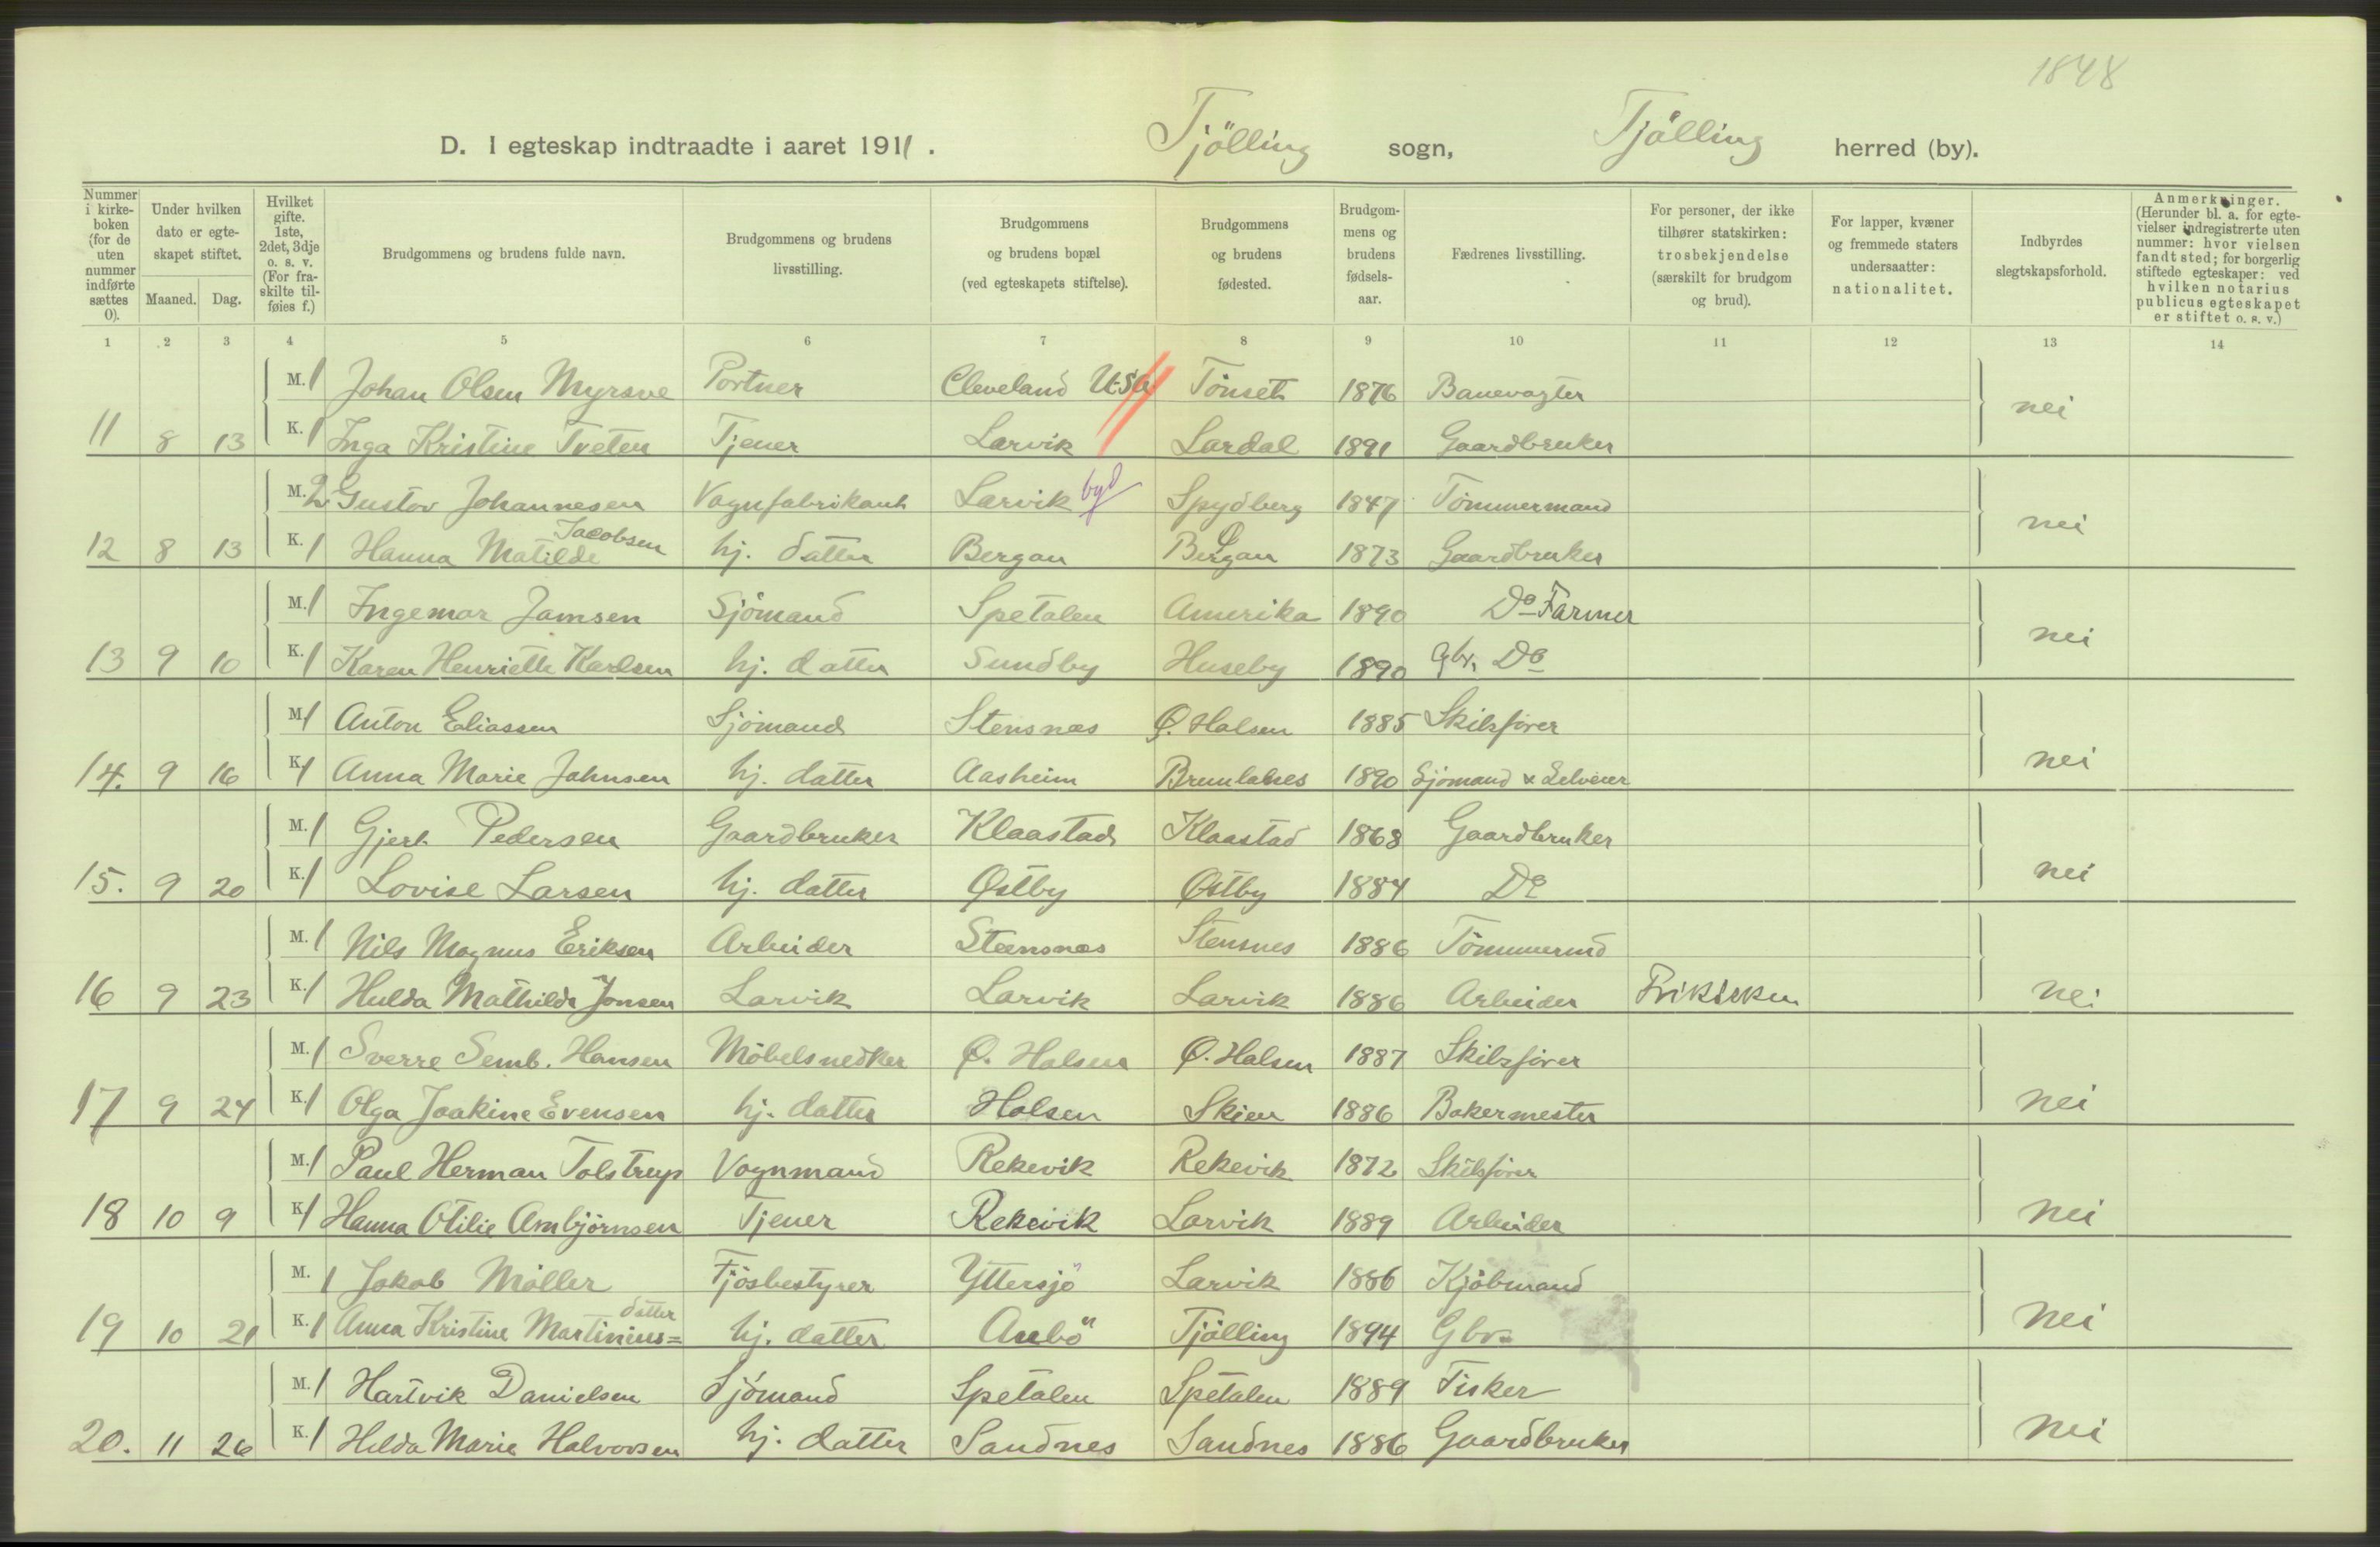 1848
D. I egteskap indtraadte i aaret 1911. Tjölling sogn, Tjölling herred (by).
Nummer i kirkeboken (for de uten nummer indførte sættes 0).
Under hvilken dato er egteskapet stiftet.
Maaned. Dag.
Hvilket gifte. 1ste, 2det, 3dje o. s. v. (For fraskilte tilføies f.)
Brudgommens og brudens fulde navn.
Brudgommens og brudens livsstilling.
Brudgommens og brudens bopæl (ved egteskapets stiftelse).
Brudgommens og brudens fødested.
Brudgommens og brudens fødselsaar.
Fædrenes livsstilling.
For personer, der ikke tilhører statskirken: trosbekjendelse (særskilt for brudgom og brud).
For lapper, kvæner og fremmede staters undersaatter: nationalitet.
Indbyrdes slegtskapsforhold.
Anmerkninger. (Herunder bl. a. for egtevielser indregistrerte uten nummer: hvor vielsen fandt sted; for borgerlig stiftede egteskaper: ved hvilken notarius publicus egteskapet er stiftet o. s. v.)
1 2 3 4 5 6 7 8 9 10 11 12 13 14
M. 1 Johan Olsen Myrsve Portner Cleveland U.S.A. Tönset 1876 Banevogter
11 8 13 K. 1 Inga Kristine Tveten Tjener Larvik Lardal 1891 Gaardbruker nei
M. 2 Gustav Johannesen Vognfabrikant Larvik by Spydberg 1847 Tömmermand
12 8 13 K. 1 Hanna Matilde Jacobsen hj. datter Bergan Bergan 1873 Gaardbruker nei
M. 1 Ingemar Jamsen Sjömand Spetalen Amerika 1890 Do Farmer
13 9 10 K. 1 Karen Henriette Karlsen hj. datter Sundby Huseby 1890 Gbr. Do nei
M. 1 Anton Eliassen Sjömand Stensnæs Ø. Halsen 1885 Skibsförer
14. 9 16 K. 1 Anna Marie Johnsen hj. datter Aasheim Brunlanes 1890 Sjömand & Selveier nei
M. 1 Gjert Pedersen Gaardbruker Klaastad Klaastad 1868 Gaardbruker
15. 9 20 K. 1 Lovise Larsen hj. datter Østby Østby 1884 Do nei
M. 1 Nils Magnus Eriksen Arbeider Steensnæs Stensnes 1886 Tömmermd
16 9 23 K. 1 Hulda Mathilde Jonsen Larvik Larvik Larvik 1886 Arbeider Frikirken nei
M. 1 Sverre Semb. Hansen Möbelsnedker Ø. Halsen Ø. Halsen 1887 Skibsförer
17 9 24 K. 1 Olga Joakine Evensen hj. datter Halsen Skien 1886 Bakermester nei
M. 1 Paul Herman Tolstrup Vognmand Rekevik Rekevik 1872 Skibsförer
18 10 9 K. 1 Hanna Otilie Arnbjörnsen Tjener Rekevik Larvik 1889 Arbeider nei
M. 1 Jakob Möller Fjösbestyrer Yttersjö Larvik 1886 Kjöbmand
19 10 21 K. 1 Anna Kristine Martinius=datter hj. datter Aubö Tjölling 1894 Gbr. nei
M. 1 Hartvik Danielsen Sjömand Spetalen Spetalen 1889 Fisker
20. 11 26 K. 1 Hilda Marie Halvorsen hj. datter Sandnes Sandnes 1886 Gaardbruker nei